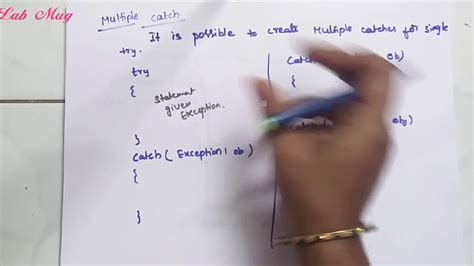 Lub Mug
Multiple catch
It is possible to create Multiple catches for single
try.
try
{
statement
given
Exception.
}
catch ( Exception1 ob )
{
}
catch ob )
{
ob)